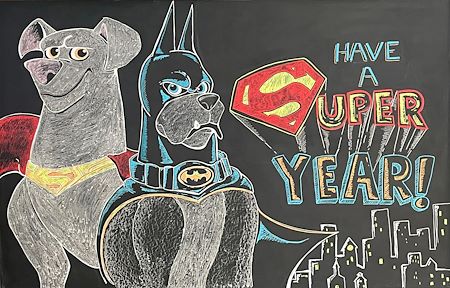 HAVE
A
SUPER
YEAR!